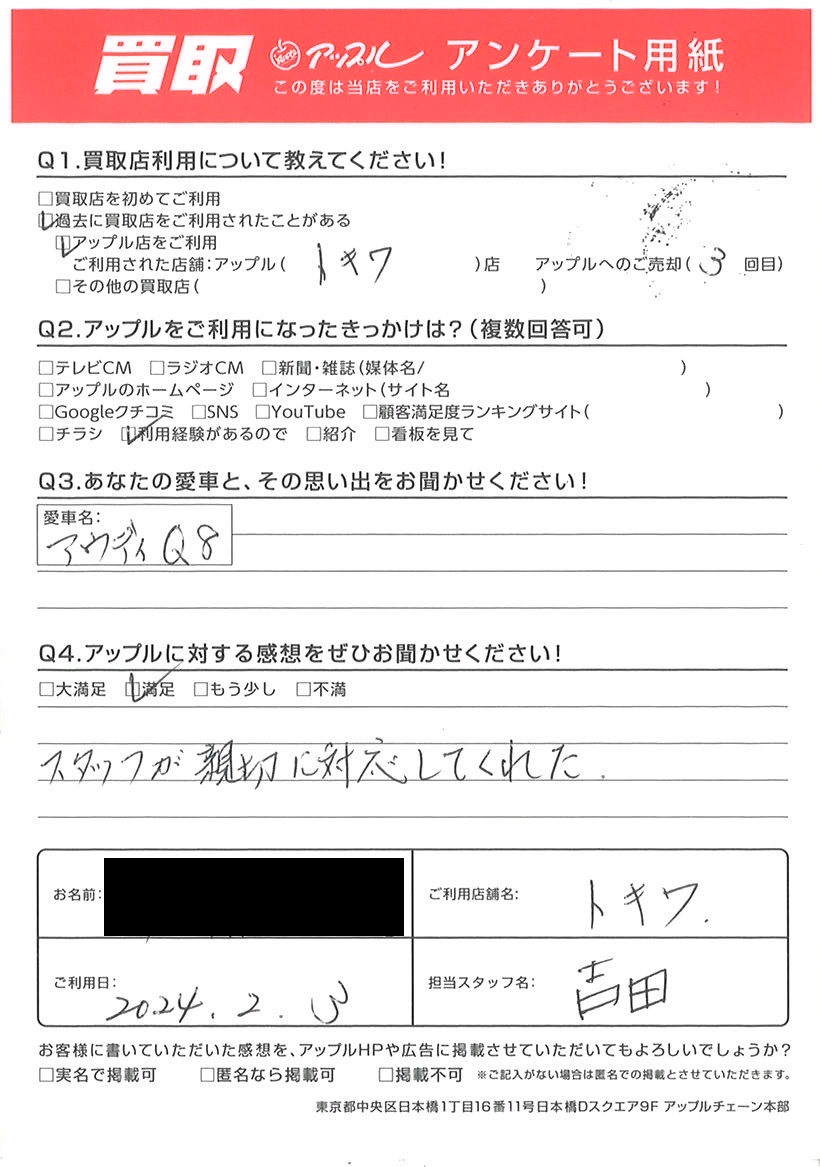 買取 アップル アンケート用紙
この度は当店をご利用いただきありがとうございます!
Q1.買取店利用について教えてください!
□買取店を初めてご利用
☑過去に買取店をご利用されたことがある
☑アップル店をご利用
ご利用された店舗:アップル( トキワ )店 アップルへのご売却( 3 回目)
□その他の買取店( )
Q2.アップルをご利用になったきっかけは?(複数回答可)
□テレビCM □ラジオCM □新聞・雑誌(媒体名/ )
□アップルのホームページ □インターネット(サイト名 )
□Googleクチコミ □SNS □YouTube □顧客満足度ランキングサイト( )
□チラシ ☑利用経験があるので □紹介 □看板を見て
Q3.あなたの愛車と、その思い出をお聞かせください!
愛車名:
アウディ Q8
Q4.アップルに対する感想をぜひお聞かせください!
□大満足 ☑満足 □もう少し □不満
スタッフが親切に対応してくれた.
お名前:
ご利用店舗名: トキワ.
ご利用日: 2024. 2. 3
担当スタッフ名: 吉田
お客様に書いていただいた感想を、アップルHPや広告に掲載させていただいてもよろしいでしょうか?
□実名で掲載可 □匿名なら掲載可 □掲載不可 ※ご記入がない場合は匿名での掲載とさせていただきます。
東京都中央区日本橋1丁目16番11号日本橋Dスクエア9F アップルチェーン本部